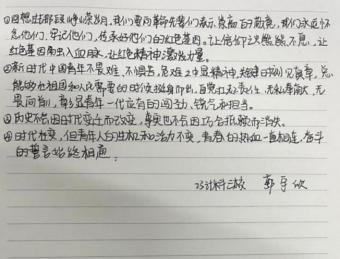 ①回想过那段峥嵘岁月,我们要向革命先辈们表示崇高的敬意,我们永远怀
念他们、牢记他们,传承好他们的红色基因。让信仰之火熊熊不息,让
红色基因融入血脉,让红色精神激发力量。
②新时代中国青年不畏难、不惧苦,危难之中显精神,关键时刻见真章,总
能够在祖国和人民需要的时候挺身而出,自觉扛起责任,无私奉献,无
畏向前,彰显青年一代应有的闯劲、锐气和担当。
③历史不会因时代变迁而改变,事实也不会因巧舌抵赖而消失。
④时代在变,但青年人的生机和活力不变,青春的热血一直相连,奋斗
的誓言始终相通。